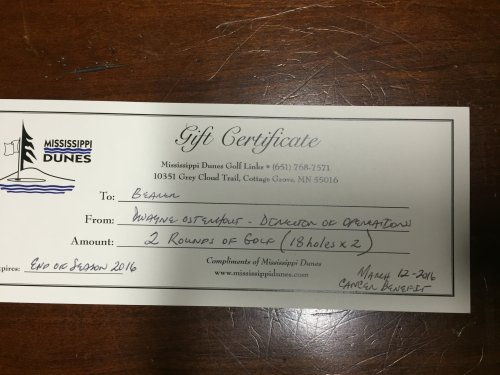 MISSISSIPPI
DUNES
Gift Certificate
Mississippi Dunes Golf Links • (651) 768-7571
10351 Grey Cloud Trail, Cottage Grove, MN 55016
To: BEARER
From: DWAYNE OSTENHOUT - DIRECTOR OF OPERATIONS
Amount: 2 ROUNDS OF GOLF (18 holes x 2)
xpires: END OF SEASON 2016
Compliments of Mississippi Dunes
www.mississippidunes.com
MARCH 12-2016
CANCER BENEFIT